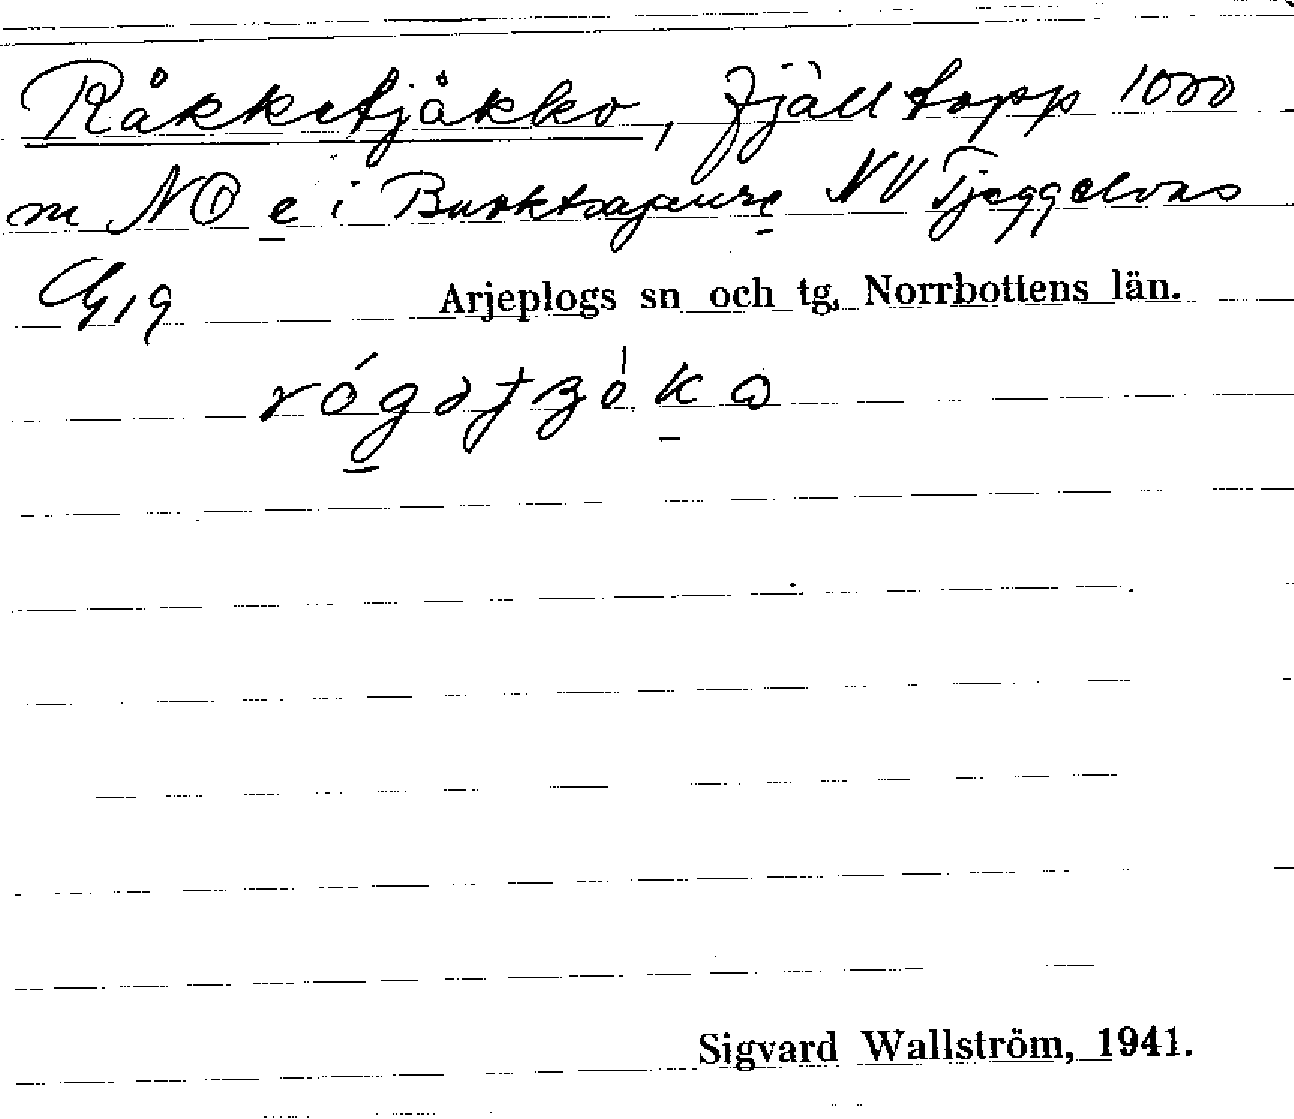 Råkketjåkko, fjälltopp 1000
m NO e i Burktsajaure NV Tjeggelvas
G19
Arjeplogs sn och tg, Norrbottens län.
Sigvard Wallström, 1941.